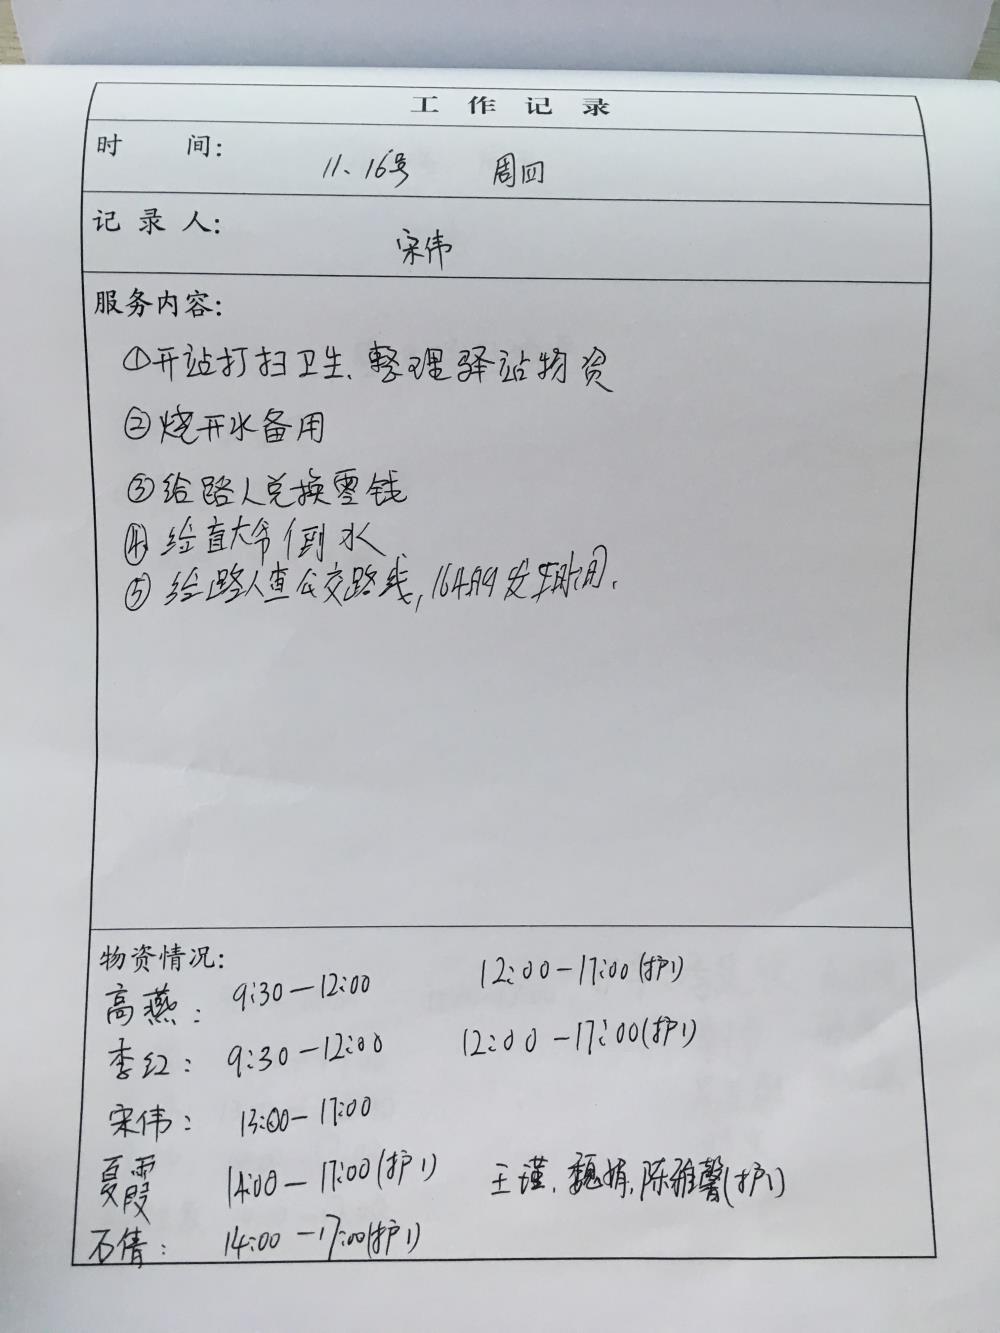 工作记录
时 间: 11、16号 周四
记录人: 宋伟
服务内容:
①开站打扫卫生、整理驿站物资
②烧开水备用
③给路人兑换零钱
④给直大爷倒水
⑤给路人查公交路线,164的发车时间.
物资情况:
高燕: 9:30—12:00 12:00—17:00(护1)
李红: 9:30—12:00 12:00—17:00(护1)
宋伟: 13:00—17:00
夏霞 14:00—17:00(护1) 王瑾.魏娟.陈雅馨(护1)
石倩: 14:00—17:00(护1)